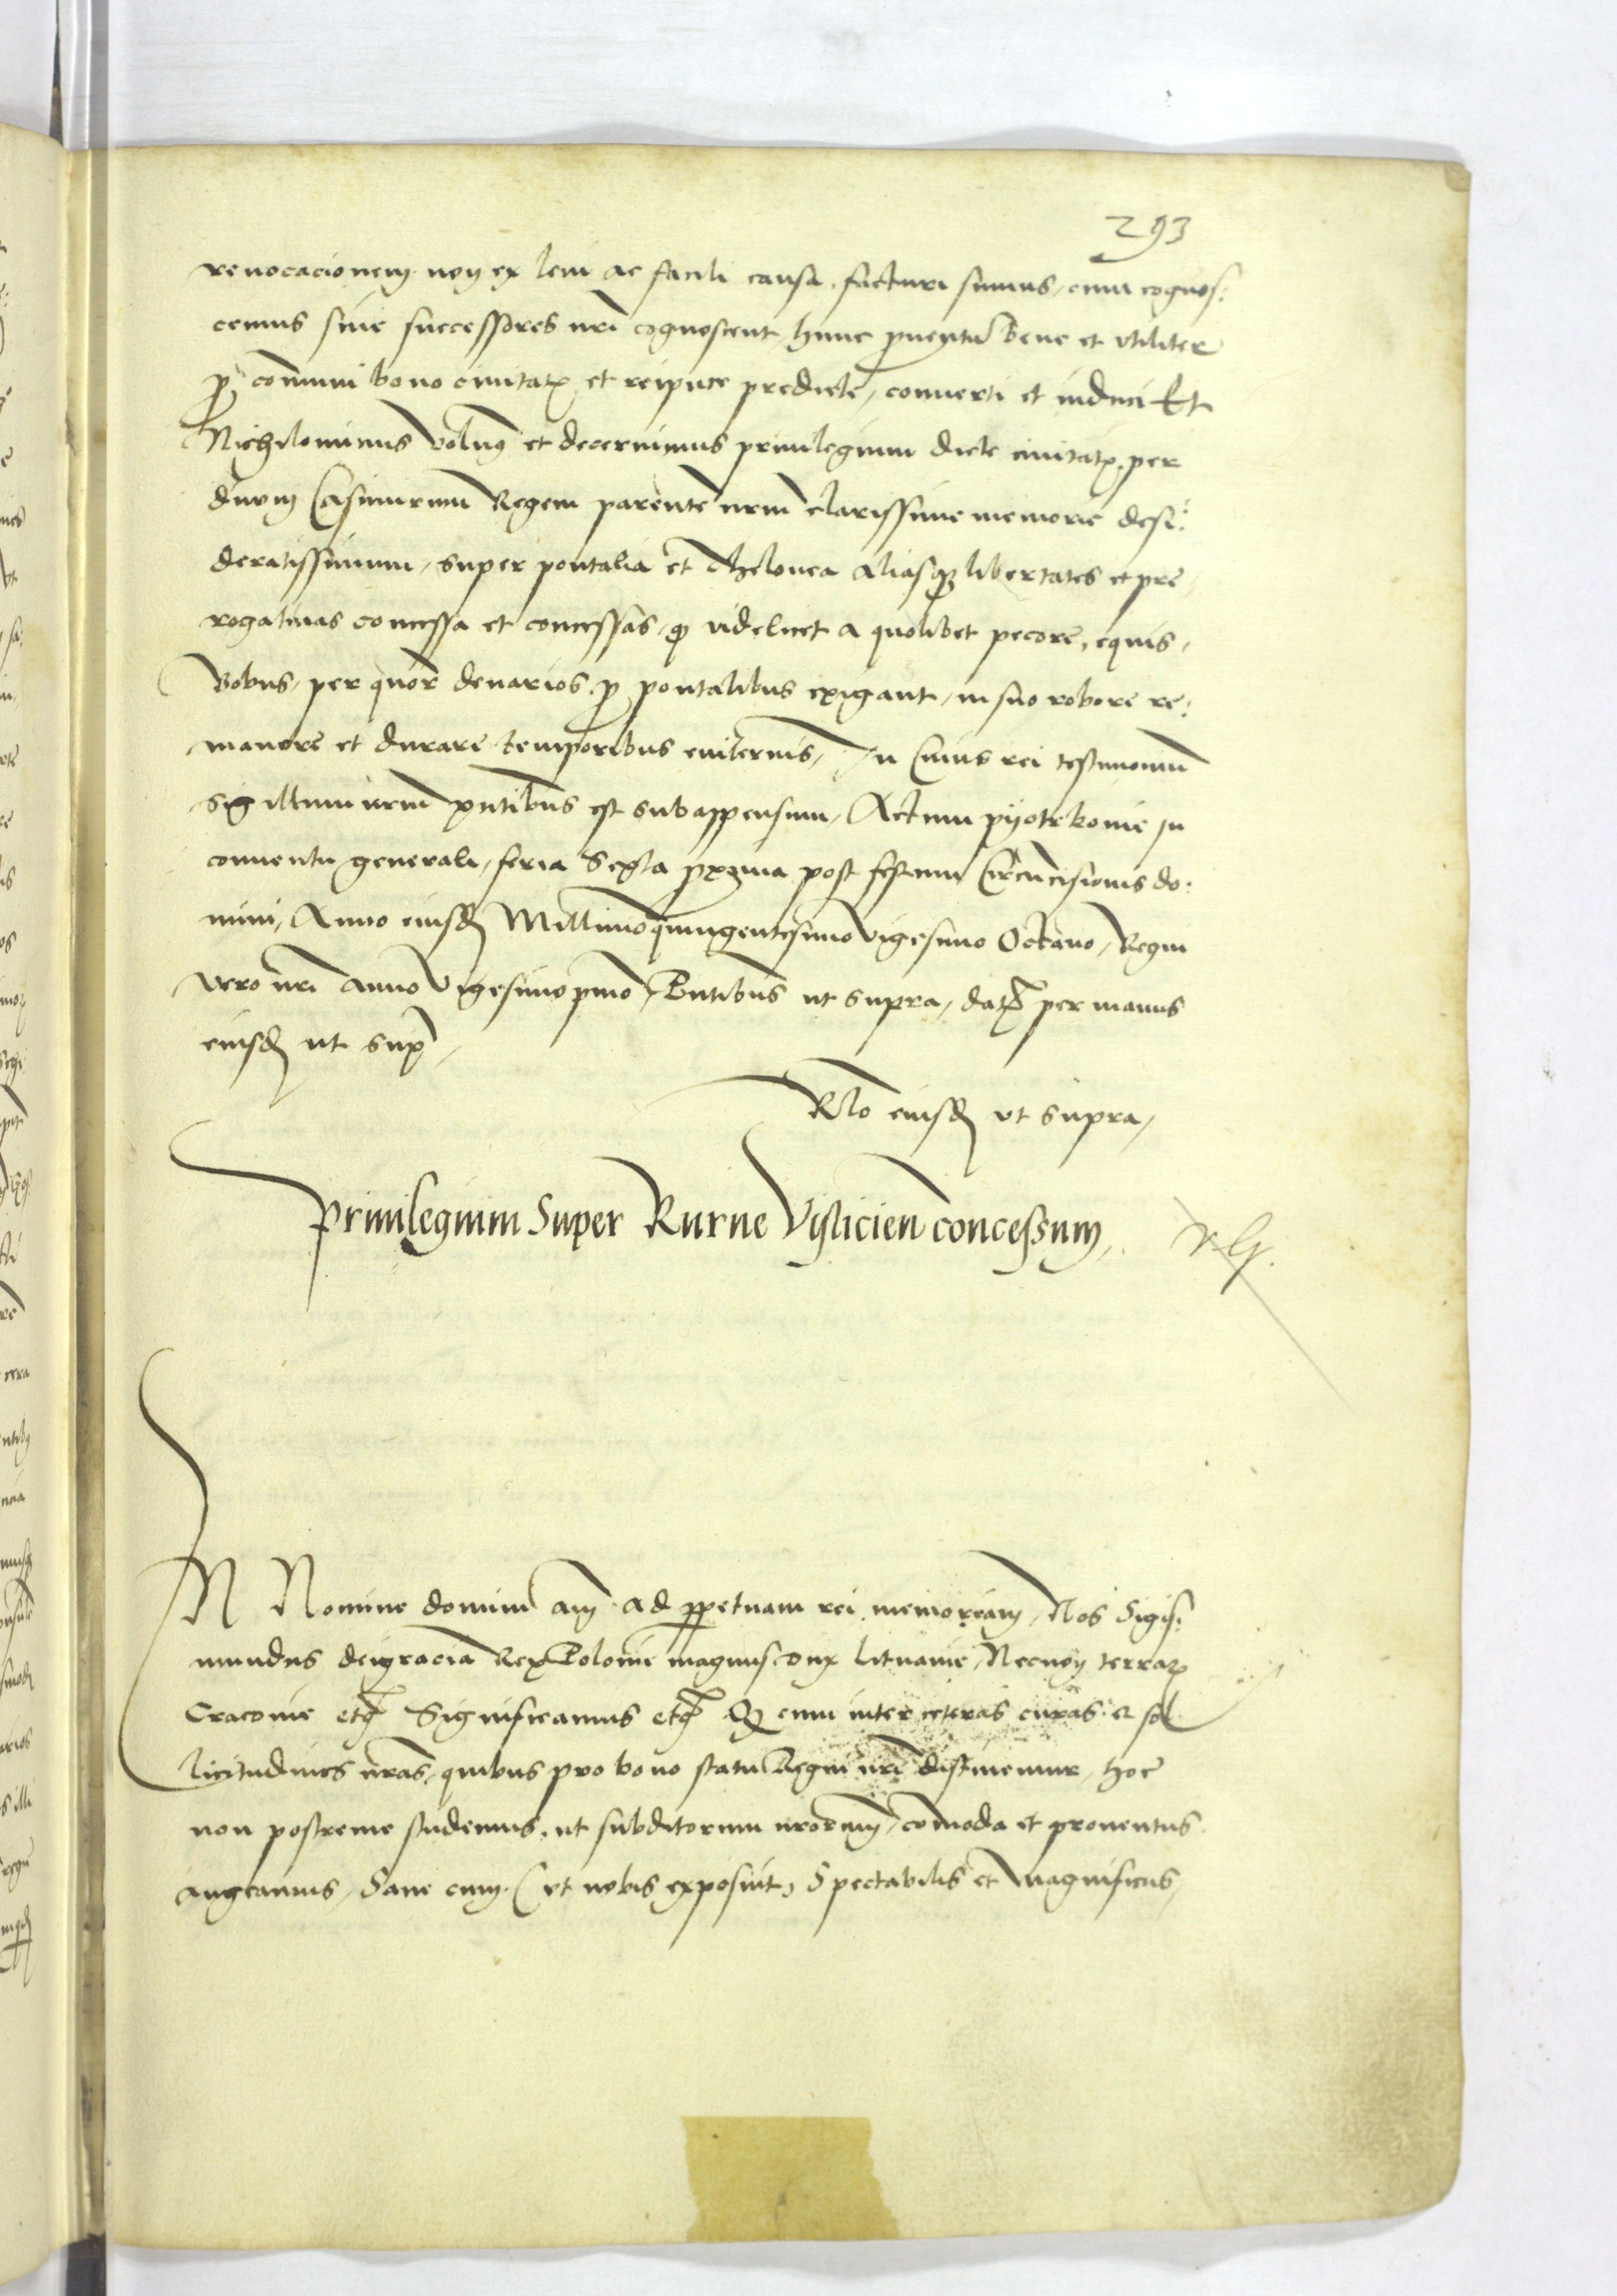 293
reuocacionem non ex leui ac facili causa, facturi sumus, cum cognos:
cemus siue successores nri cognoscent, hunc prouentu bene et vtiliter
p comuni bono ciuitatis et reipuce predicte, conuerti et induci Et
Nichilominus volum9 et decernimus priuilegium dicte ciuitatis per
diuum Casimirum Regem parente nrm clarissime memorie desi:
deratissimum, super pontalia et thelonea aliasq3 libertates et pre
rogatiuas concessa et concessas, q videlicet a quolibet pecore, equis,
Bobus, per quor denarios p pontalibus exigant, in suo robore re:
manere et durare temporibus euiternis, In Cuius rei testimoniu
Sigillum nrm pntibus est subappensum, Actum pyotrkouie in
conuentu generali, feria Sexta proxima post festum Circucisionis do:
mini, Anno eiusd Millimoquingentesimovigesimo Octauo, Regni
vero nri anno vigesimopmo, Pntibus ut supra, dat per manus
eiusd ut sup,
Rlo eiusd vt supra,
Priuilegium Super Rurne Vislicien concessum,
In Nomine domini am ad ppetuam rei memoriam, Nos Sigis:
mundus dei gracia Rex Polonie magnus dux lituanie, Necnon terrar
Cracouie etc Significamus etc Q cum inter ceteras curas et sol
licitudines nras, quibus pro bono statu Regni nri distinemur, hoc
non postreme studemus, ut subditorum nrorum, comoda et prouentus
augeamus, Sane cum (vt nobis exposuit) Spectabilis et Magnificus,